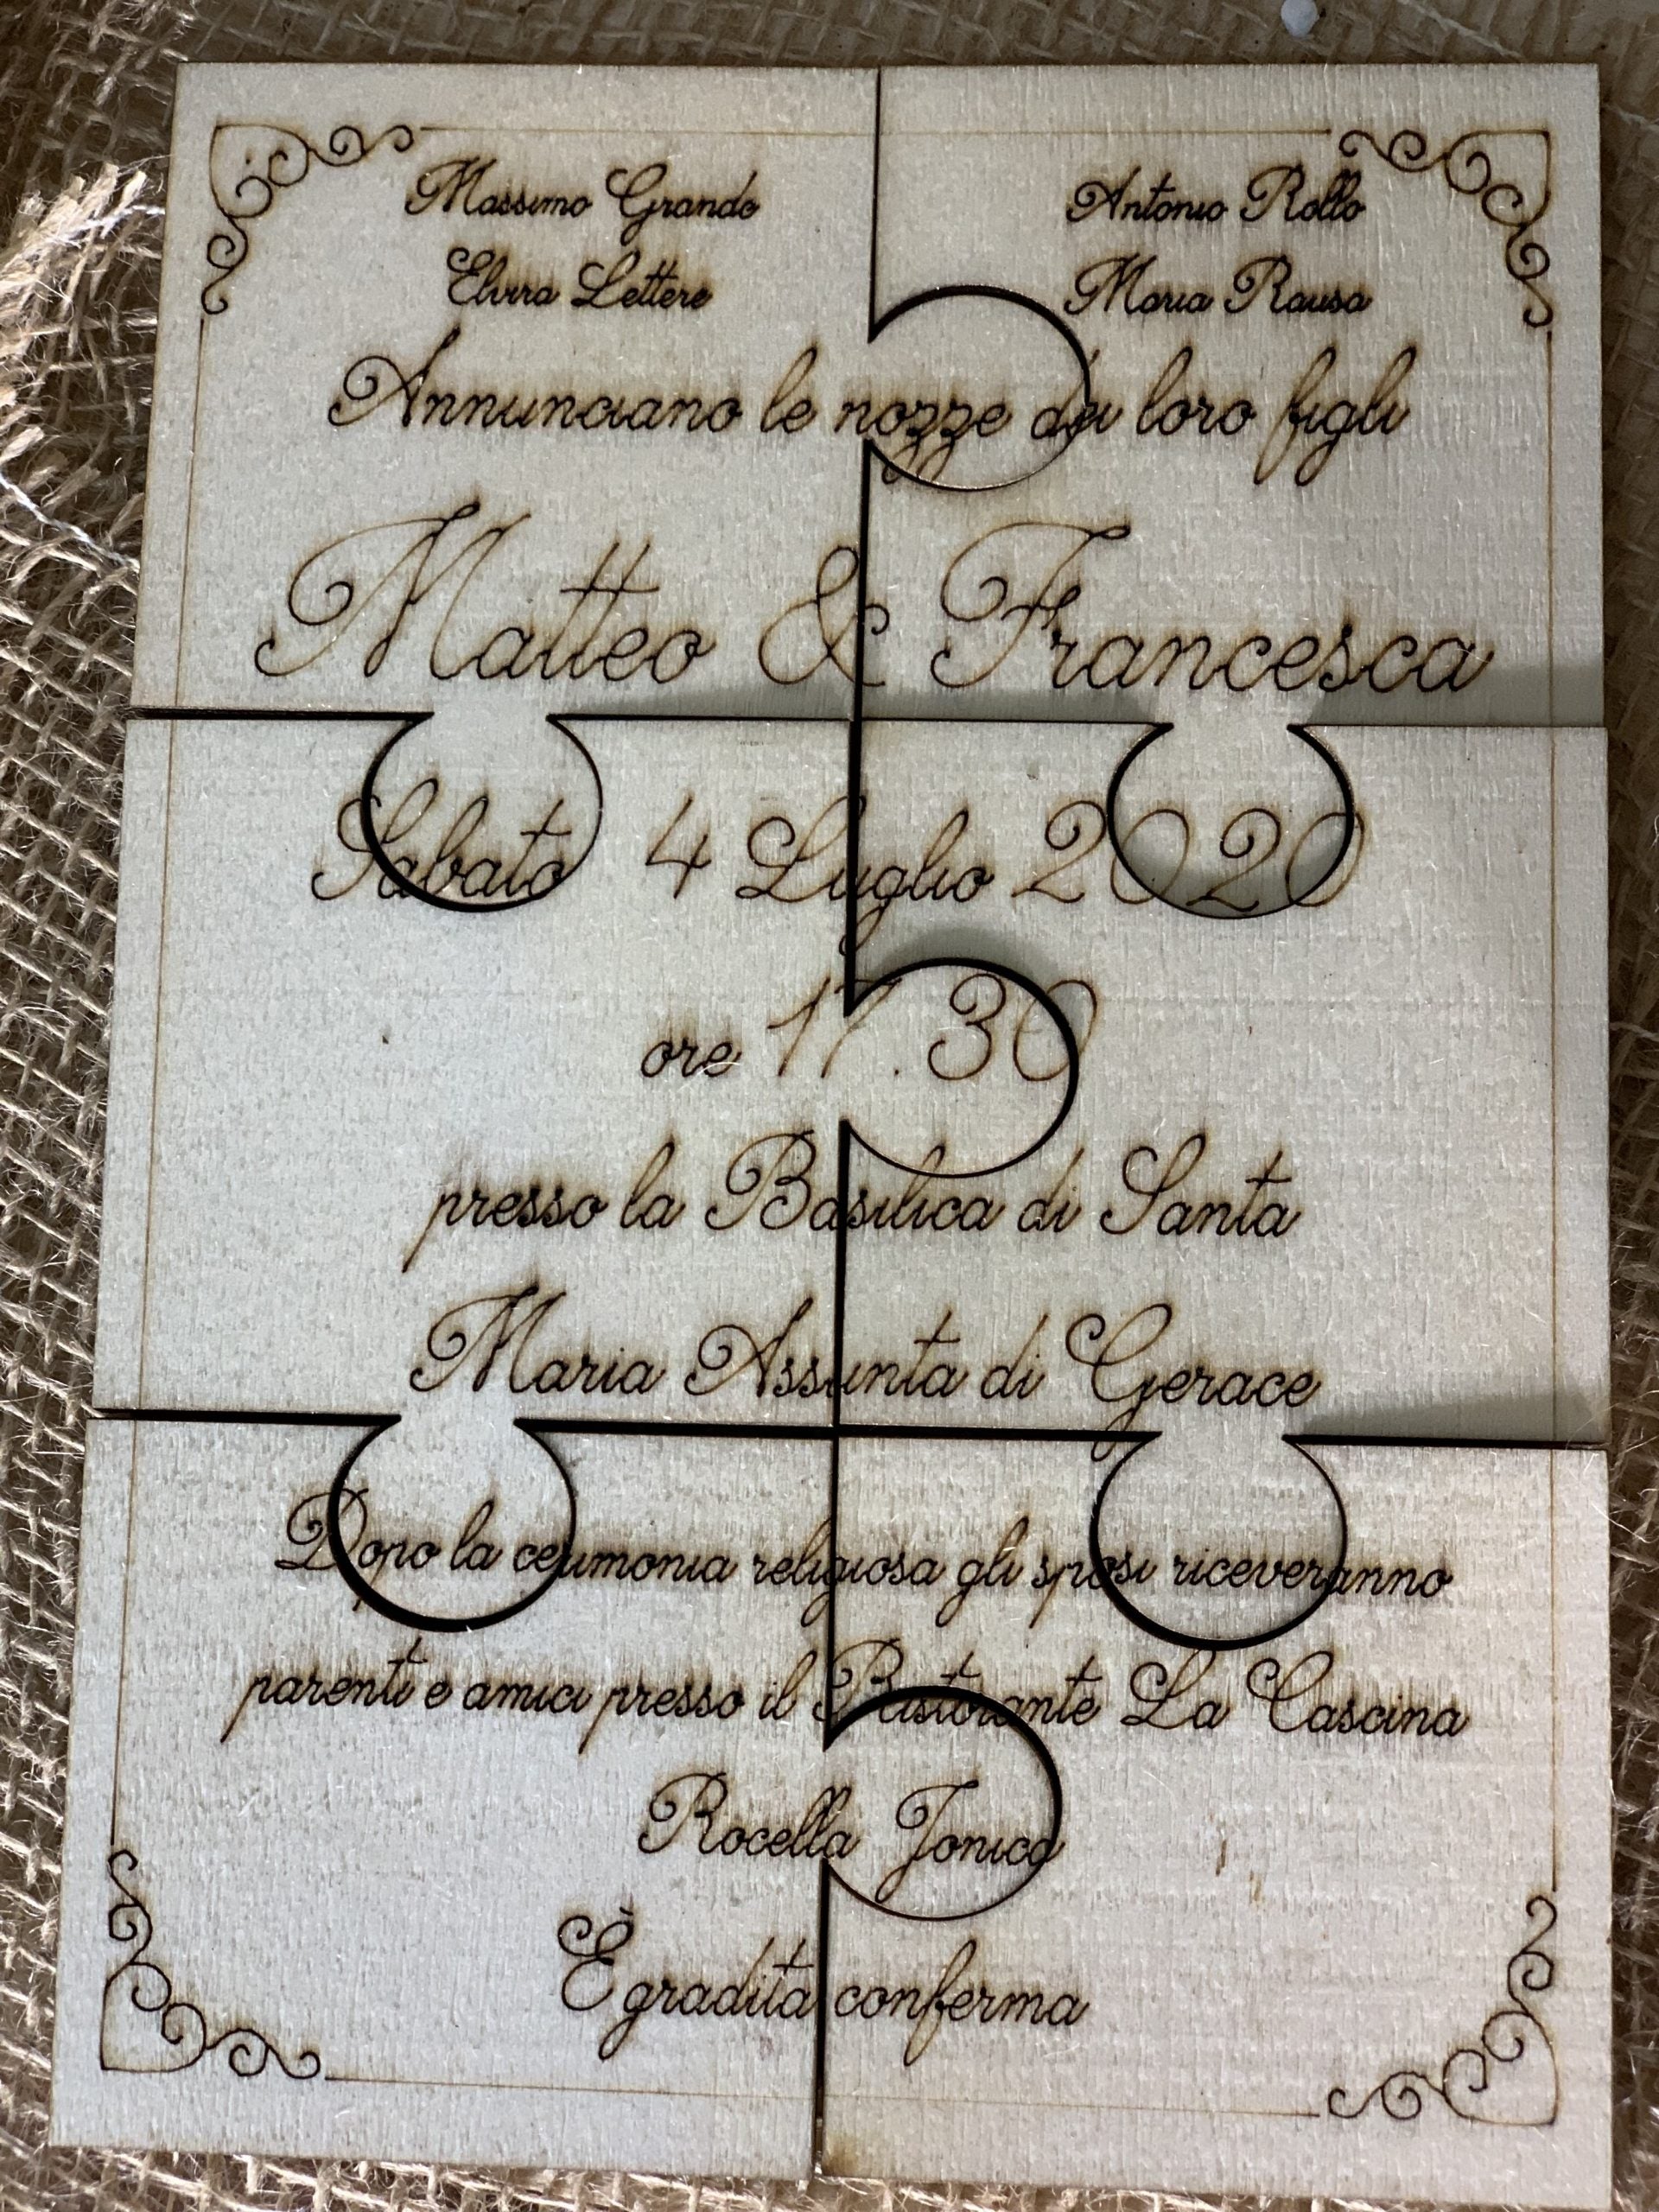 Massimo Grande
Antonio Rollo
Elvira Lettere
Maria Rausa
Annunciano le nozze dei loro figli
Matteo & Francesca
Sabato 4 Luglio 2020
ore 17.30
presso la Basilica di Santa
Maria Assunta di Gerace
Dopo la cerimonia religiosa gli sposi riceveranno
parenti e amici presso il Ristorante La Cascina
Rocella Jonica
È gradita conferma